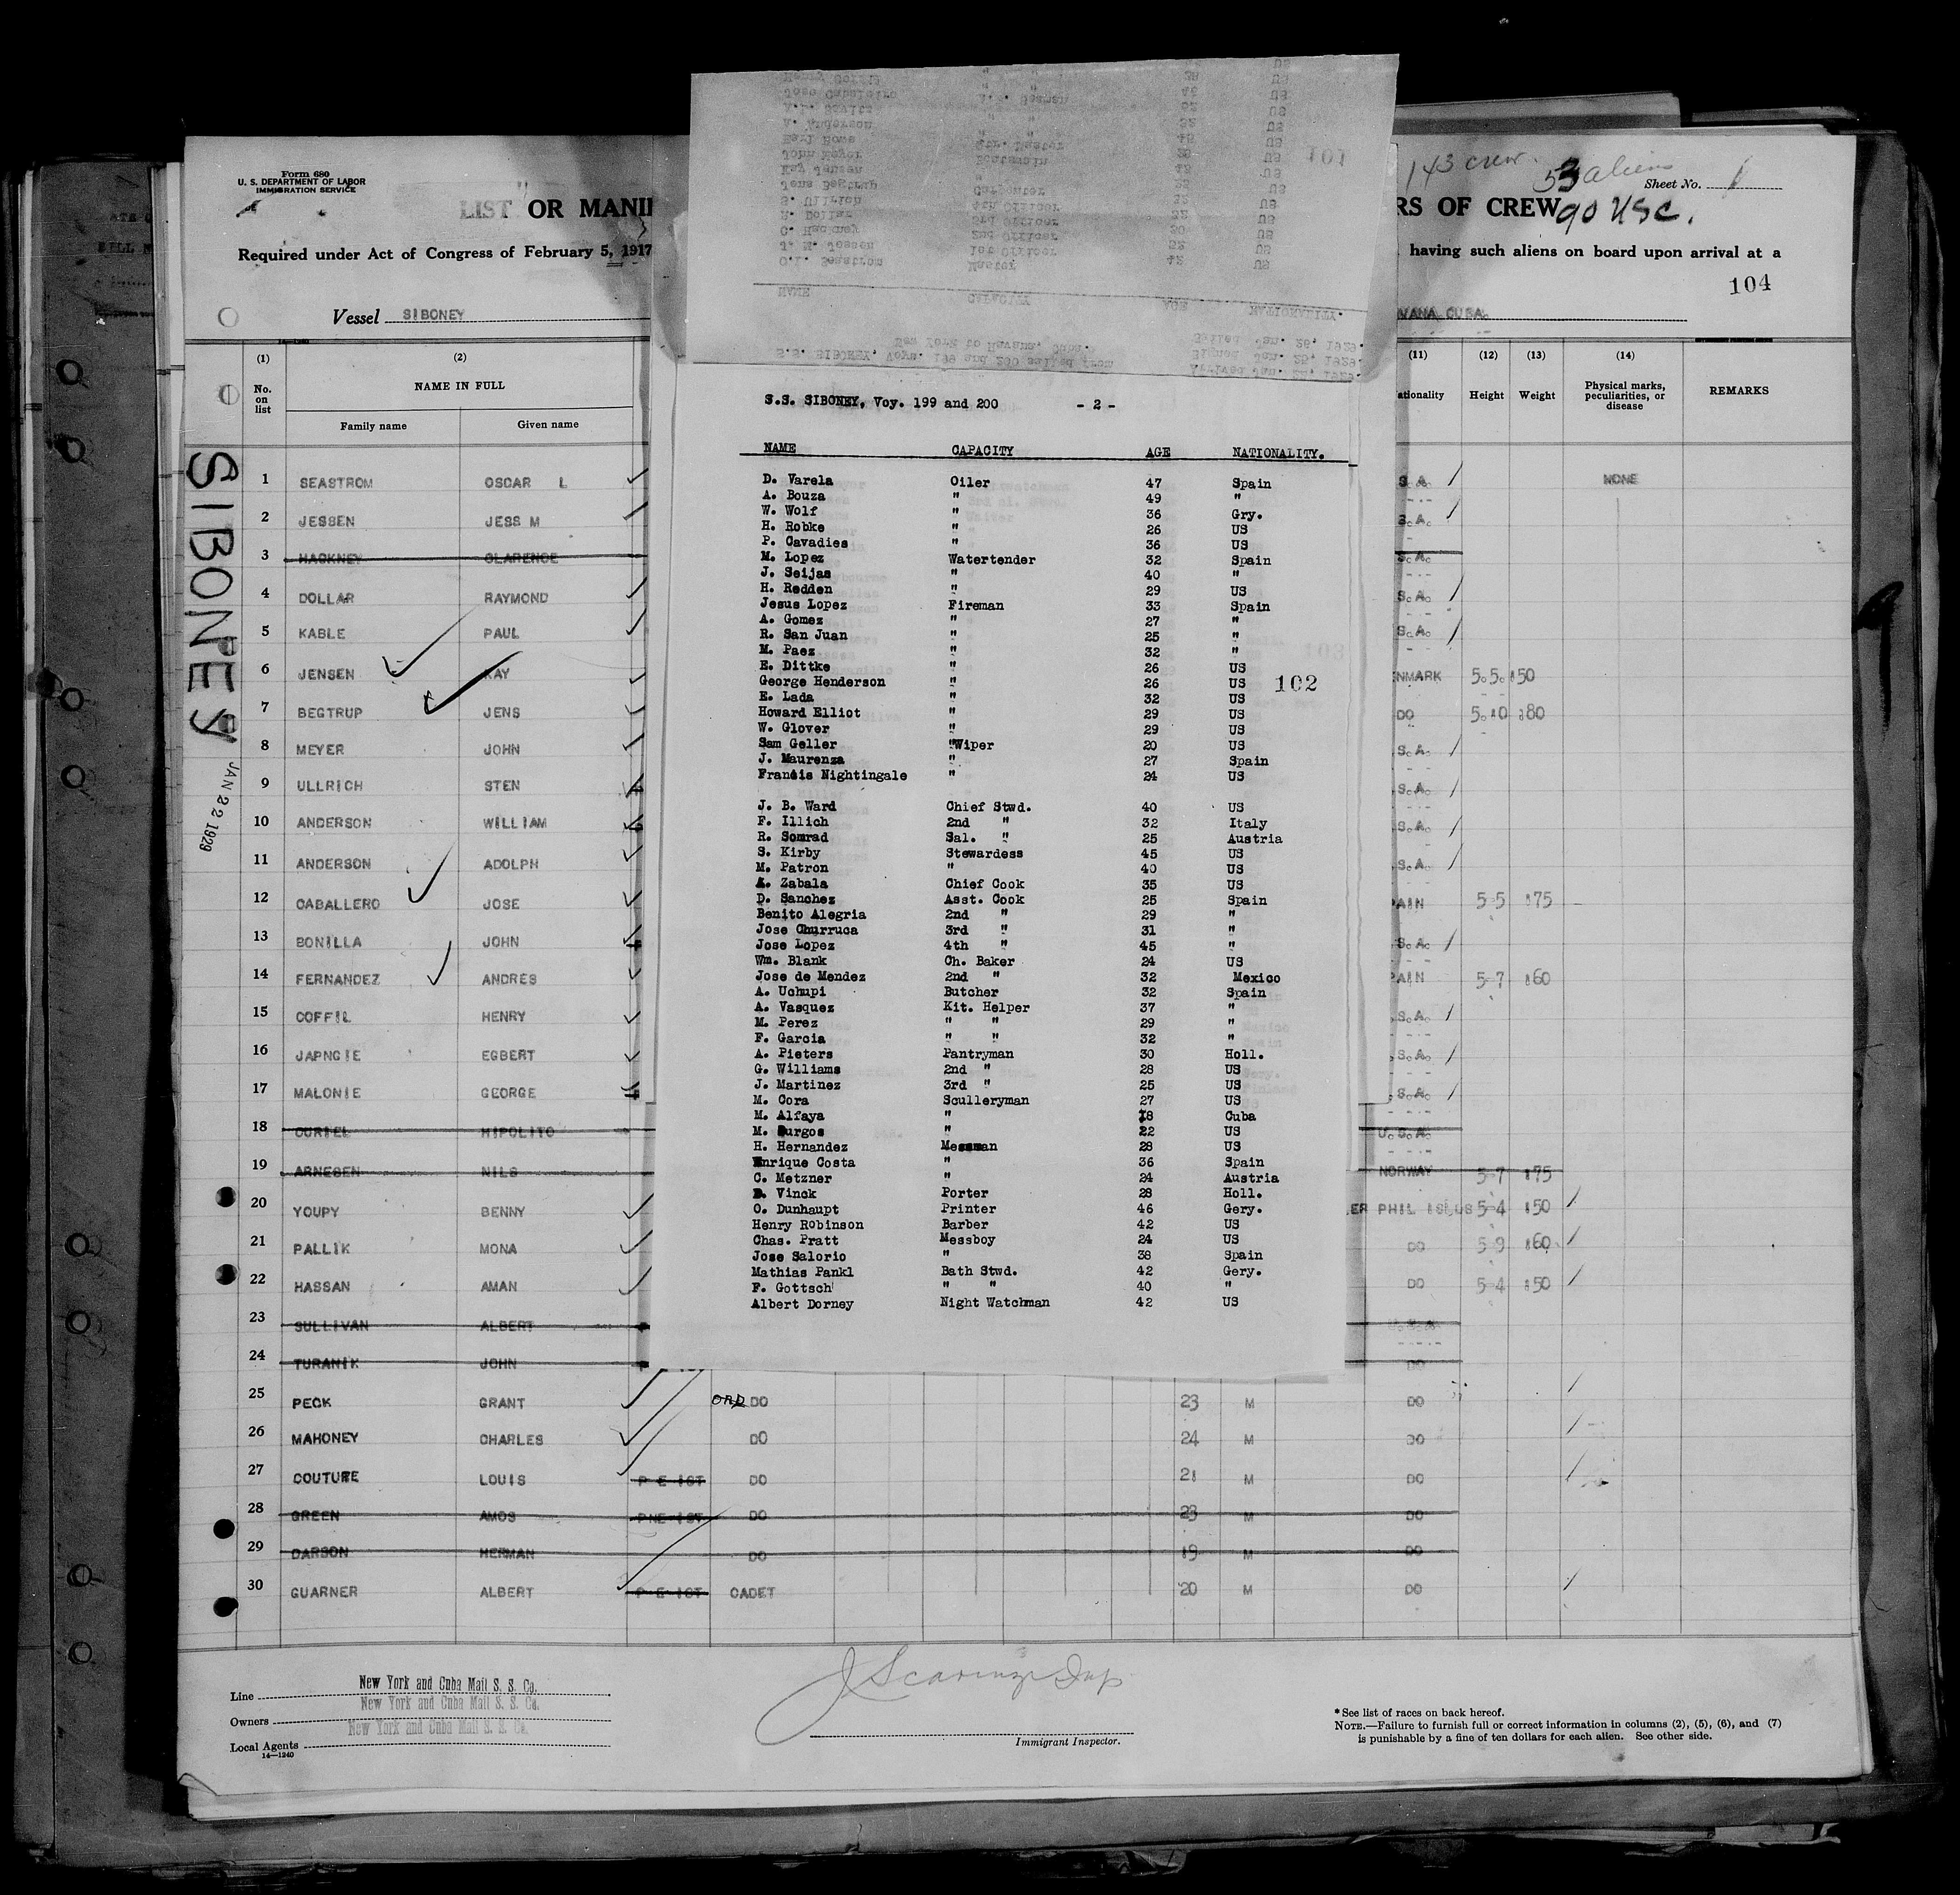 Form 680
U. S. DEPARTMENT OF LABOR
IMMIGRATION SERVICE
LIST OR MANI
RS OF CREW
143 crew.
53 aliens
90 USC.
Sheet No. 1
Required under Act of Congress of February 5, 1917
having such aliens on board upon arrival at a
104
Vessel SIBONEY
VANA CUBA
SIBONEY
JAN 22 1929
(1) (2) (11) (12) (13) (14)
No. on list NAME IN FULL ationality Height Weight Physical marks, peculiarities, or disease REMARKS
Family name Given name
1 SEASTROM OSCAR L S.A. NONE
2 JESSEN JESS M S.A.
3 HACKNEY CLARENCE S.A.
4 DOLLAR RAYMOND S.A.
5 KABLE PAUL S.A.
6 JENSEN KAY NMARK 5.5. 150
7 BEGTRUP JENS DO 5.10 180
8 MEYER JOHN S.A.
9 ULLRICH STEN S.A.
10 ANDERSON WILLIAM S.A.
11 ANDERSON ADOLPH S.A.
12 CABALLERO JOSE PAIN 5-5 175
13 BONILLA JOHN S.A.
14 FERNANDEZ ANDRES PAIN 5-7 160
15 COFFIL HENRY S.A.
16 JAPNGIE EGBERT S.A.
17 MALONIE GEORGE S.A.
18 CURIEL HIPOLITO U.S.A.
19 ARNESEN NILS NORWAY 5-7 175
20 YOUPY BENNY ER PHIL ISLDS 5-4 150
21 PALLIK MONA DO 5-9 160
22 HASSAN AMAN DO 5-4 150
23 SULLIVAN ALBERT
24 TURANIK JOHN DO
25 PECK GRANT ORD DO 23 M DO
26 MAHONEY CHARLES DO 24 M DO
27 COUTURE LOUIS DO 21 M DO
28 GREEN AMOS DO 23 M DO
29 DARSON HERMAN DO 19 M DO
30 GUARNER ALBERT CADET 20 M DO
S.S. SIBONEY, Voys. 199 and 200 sailed from
New York to Havana, Cuba.
Arrived Jan. 22, 1929.
Signed Jan. 25, 1929.
Sailed Jan. 26, 1929.
NAME CAPACITY AGE NATIONALITY.
O.L. Seastrom Master 42 US
J. M. Jessen 1st Officer 52 US
C. Hackney 2nd Officer 30 US
R. Dollar 3rd Officer 32 US
S. Ullrich 4th Officer 32 US
Jens Begtrup Carpenter US
Kay Jensen US
John Meyer Boatswain US
Earl Rowe Qtr. Master US
A. Anderson " " 32 US
" " US
Jose Caballero A.B. Seaman US
Henry Coffil " " 38 US
101
S.S. SIBONEY, Voy. 199 and 200 - 2 -
NAME CAPACITY AGE NATIONALITY.
D. Varela Oiler 47 Spain
A. Bouza " 49 "
W. Wolf " 36 Gry.
H. Robke " 26 US
P. Cavadies " 36 US
M. Lopez Watertender 32 Spain
J. Seijas " 40 "
H. Redden " 29 US
Jesus Lopez Fireman 33 Spain
A. Gomez " 27 "
R. San Juan " 25 "
M. Paez " 32 "
E. Dittke " 26 US
George Henderson " 26 US
102
E. Lada " 32 US
Howard Elliot " 29 US
W. Glover " 29 US
Sam Geller "Wiper 20 US
J. Maurenza " 27 Spain
Francis Nightingale " 24 US
J. B. Ward Chief Stwd. 40 US
F. Illich 2nd " 32 Italy
R. Somrad Sal. " 25 Austria
S. Kirby Stewardess 45 US
M. Patron " 40 US
A. Zabala Chief Cook 35 US
D. Sanchez Asst. Cook 25 Spain
Benito Alegria 2nd " 29 "
Jose Churruca 3rd " 31 "
Jose Lopez 4th " 45 "
Wm. Blank Ch. Baker 24 US
Jose de Mendez 2nd " 32 Mexico
A. Uchupi Butcher 32 Spain
A. Vasquez Kit. Helper 37 "
M. Perez " " 29 "
F. Garcia " " 32 "
A. Pieters Pantryman 30 Holl.
G. Williams 2nd " 28 US
J. Martinez 3rd " 25 US
M. Cora Sculleryman 27 US
M. Alfaya " 18 Cuba
M. Burgos " 22 US
H. Hernandez Messman 28 US
Enrique Costa " 36 Spain
C. Metzner " 24 Austria
D. Vinck Porter 28 Holl.
O. Dunhaupt Printer 46 Gery.
Henry Robinson Barber 42 US
Chas. Pratt Messboy 24 US
Jose Salorio " 38 Spain
Mathias Pankl Bath Stwd. 42 Gery.
F. Gottsch " " 40 "
Albert Dorney Night Watchman 42 US
Line New York and Cuba Mail S. S. Co.
Owners New York and Cuba Mail S. S. Co.
Local Agents New York and Cuba Mail S. S. Co.
14—1240
Immigrant Inspector.
* See list of races on back hereof.
NOTE.—Failure to furnish full or correct information in columns (2), (5), (6), and (7)
is punishable by a fine of ten dollars for each alien. See other side.